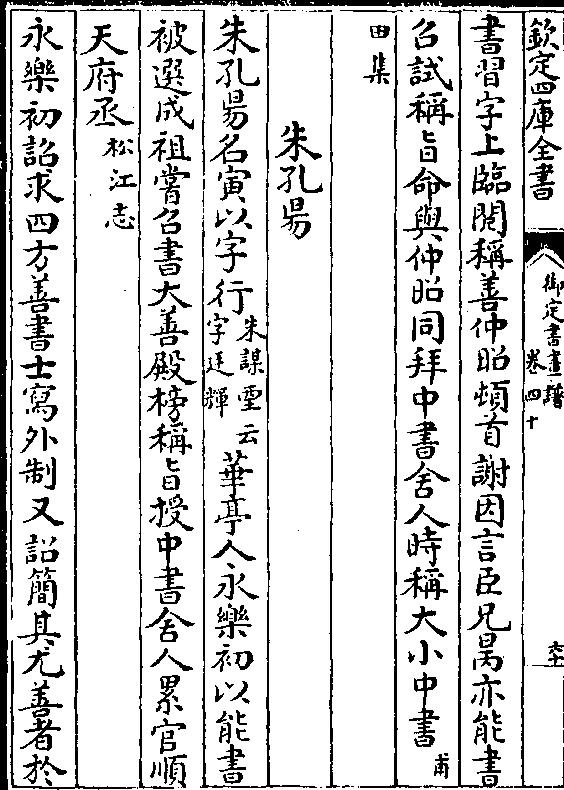 欽定四庫全書
御定書畫譜
卷四十
六十
書習字上臨閱稱善仲昭頓首謝因言臣兄昺亦能書
召試稱旨命與仲昭同拜中書舍人時稱大小中書甫
田集
朱孔昜
朱孔昜名寅以字行朱謀垔云字廷輝華亭人永樂初以能書
被選成祖嘗召書大善殿榜稱旨授中書舍人累官順
天府丞松江志
永樂初詔求四方善書士寫外制又詔簡其尤善者於